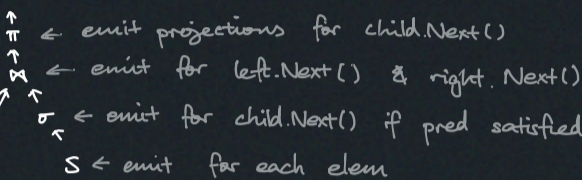 π ← emit projections for child.Next()
⋈ ← emit for left.Next() & right.Next()
σ ← emit for child.Next() if pred satisfied
S ← emit for each elem